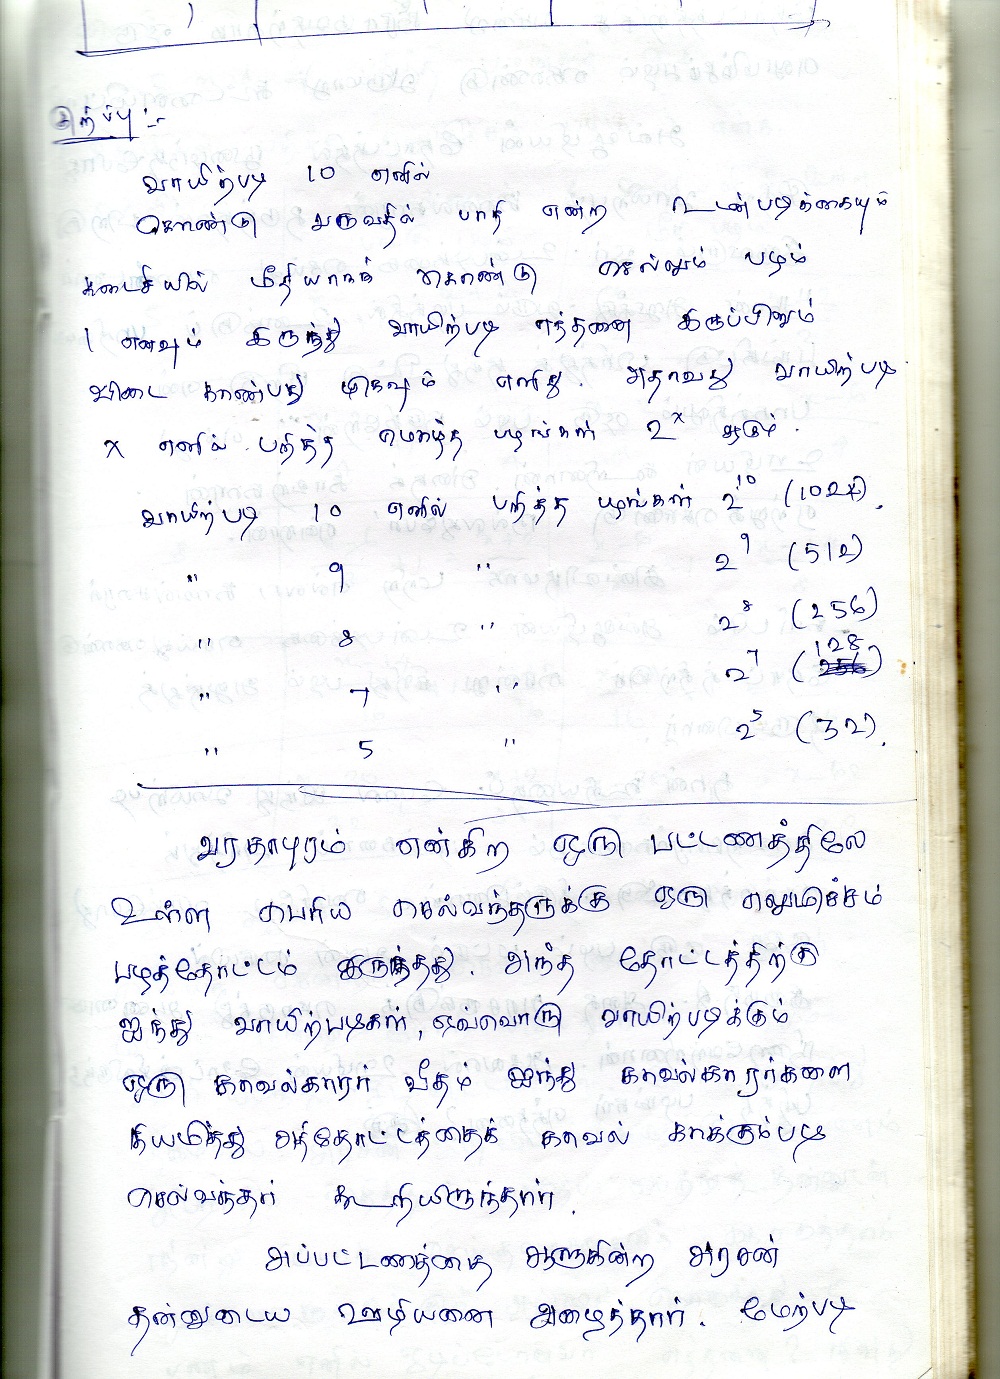 குறிப்பு :-
வாயிற்படி 10 எனில்
கொண்டு வருவதில் பாதி என்ற உடன்படிக்கையும்
கடைசியில் மீதியாகக் கொண்டு செல்லும் பழம்
1 எனவும் இருந்து வாயிற்படி எத்தனை இருப்பினும்
விடை காண்பது மிகவும் எளிது. அதாவது வாயிற்படி
x எனில் பறித்த மொத்த பழங்கள் 2^x ஆகும்.
வாயிற்படி 10 எனில் பறித்த பழங்கள் 2^10 (1024).
" 9 " 2^9 (512)
" 8 " 2^8 (256)
" 7 " 2^7 (128)
" 5 " 2^5 (32).
வரதாபுரம் என்கிற ஒரு பட்டணத்திலே
உள்ள பெரிய செல்வந்தருக்கு ஒரு எலுமிச்சம்
பழத்தோட்டம் இருந்தது. அந்த தோட்டத்திற்கு
ஐந்து வாயிற்படிகள், ஒவ்வொரு வாயிற்படிக்கும்
ஒரு காவல்காரர் வீதம் ஐந்து காவல்காரர்களை
நியமித்து அத்தோட்டத்தைக் காவல் காக்கும்படி
செல்வந்தர் கூறியிருந்தார்.
அப்பட்டணத்தை ஆளுகின்ற அரசன்
தன்னுடைய ஊழியனை அழைத்தார். மேற்படி